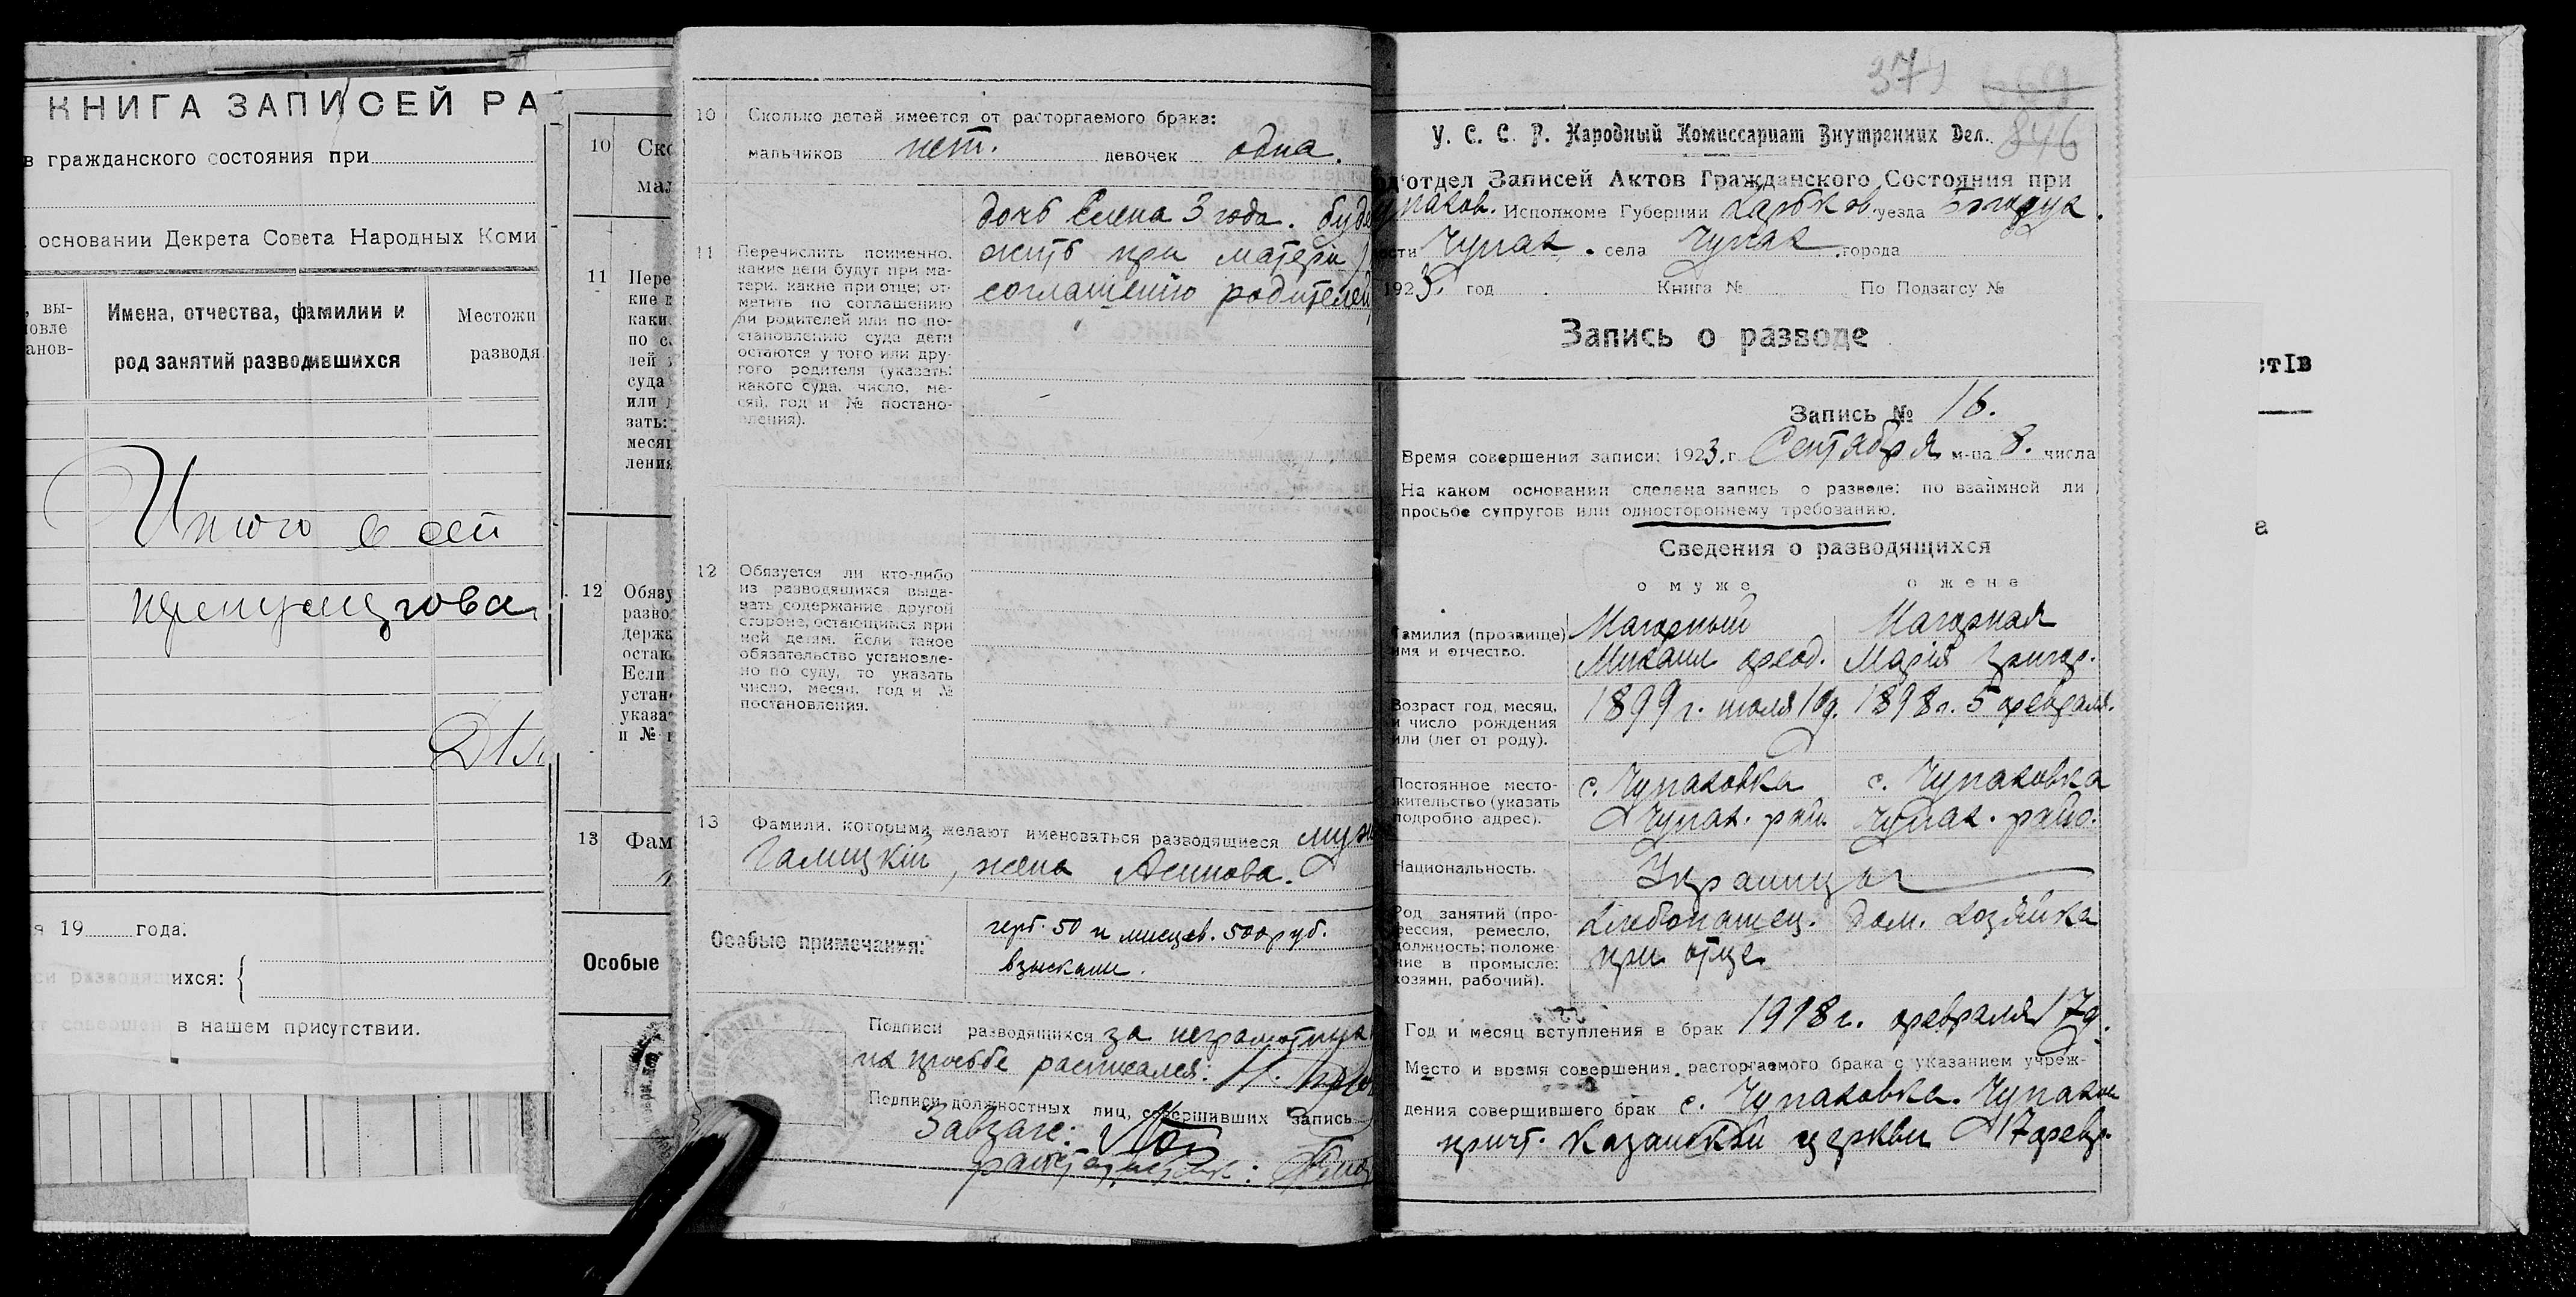 КНИГА ЗАПИСЕЙ РА
в гражданского состояния при
основании Декрета Совета Народных Коми
, вы-
новле
анов-
Имена, отчества, фамилии и
род занятий разводившихся
Местожи
разводя
Итого в сей
я 19 года.
си разводящихся:
кт совершен в нашем присутствии.
10 Ско
мал
11 Пере
кие
каки
по с
лей
суда
или
зать:
месяц
ления
12 Обязу
разво
держа
остаю
Если
устан
указа
и №
13 Фам
Особые
10 Сколько детей имеется от расторгаемого брака:
мальчиков нет. девочек одна.
11 Перечислить поименно,
какие дети будут при ма-
тери, какие при отце; от-
метить по соглашению
ли родителей или по по-
становлению суда дети
остаются у того или дру-
гого родителя (указать:
какого суда, число, ме-
сяц, год и № постано-
вления).
дочь Елена 3 года. буде
жить при матери
соглашению родителей
12 Обязуется ли кто-либо
из разводящихся выда-
вать содержание другой
стороне, остающимся при
ней детям. Если такое
обязательство установле-
но по суду, то указать
число, месяц, год и №
постановления.
13 Фамилии, которыми желают именоваться разводящиеся муж
Галицкій, жена Асинова.
Особые примечания:
герб. 50 и 500 руб.
взыскали.
Подписи разводящихся за неграмотных
по просьбе расписался:
Подписи должностных лиц, совершивших запись
Завзагс:
374
846
У. С. С. Р. Народный Комиссариат Внутренних Дел.
од'отдел Записей Актов Гражданского Состояния при
Чупахов. Исполкоме Губернии Харьков. уезда
ости Чупах. села Чупах города
1923. год Книга № По Подзагсу №
Запись о разводе
Запись № 16.
Время совершения записи: 1923. г. Сентября м-ца 8. числа
На каком основании сделана запись о разводе: по взаимной ли
просьбе супругов или одностороннему требованию.
Сведения о разводящихся
о муже о жене
Фамилия (прозвище)
имя и отчество.
Магорный
Михаил Феод.
Магорная
Марія Григор.
Возраст год, месяц,
и число рождения
или (лет от роду).
1899 г. июля 10 д.
1898 г. 5 февраля.
Постоянное место-
жительство (указать
подробно адрес).
с. Чупаховка
Чупах. рай.
с. Чупаховка
Чупах. райо.
Национальность.
Украинцы
Род занятий (про-
фессия, ремесло,
должность; положе-
ние в промысле:
хозяин, рабочий).
Хлебопашец.
при отце
Дом. хозяйка
Год и месяц вступления в брак 1918 г. февраля 17 д.
Место и время совершения расторгаемого брака с указанием учреж-
дения совершившего брак с. Чупаховка. Чупахов
причт. Казанской церкви 17 февр.
:тІв
а